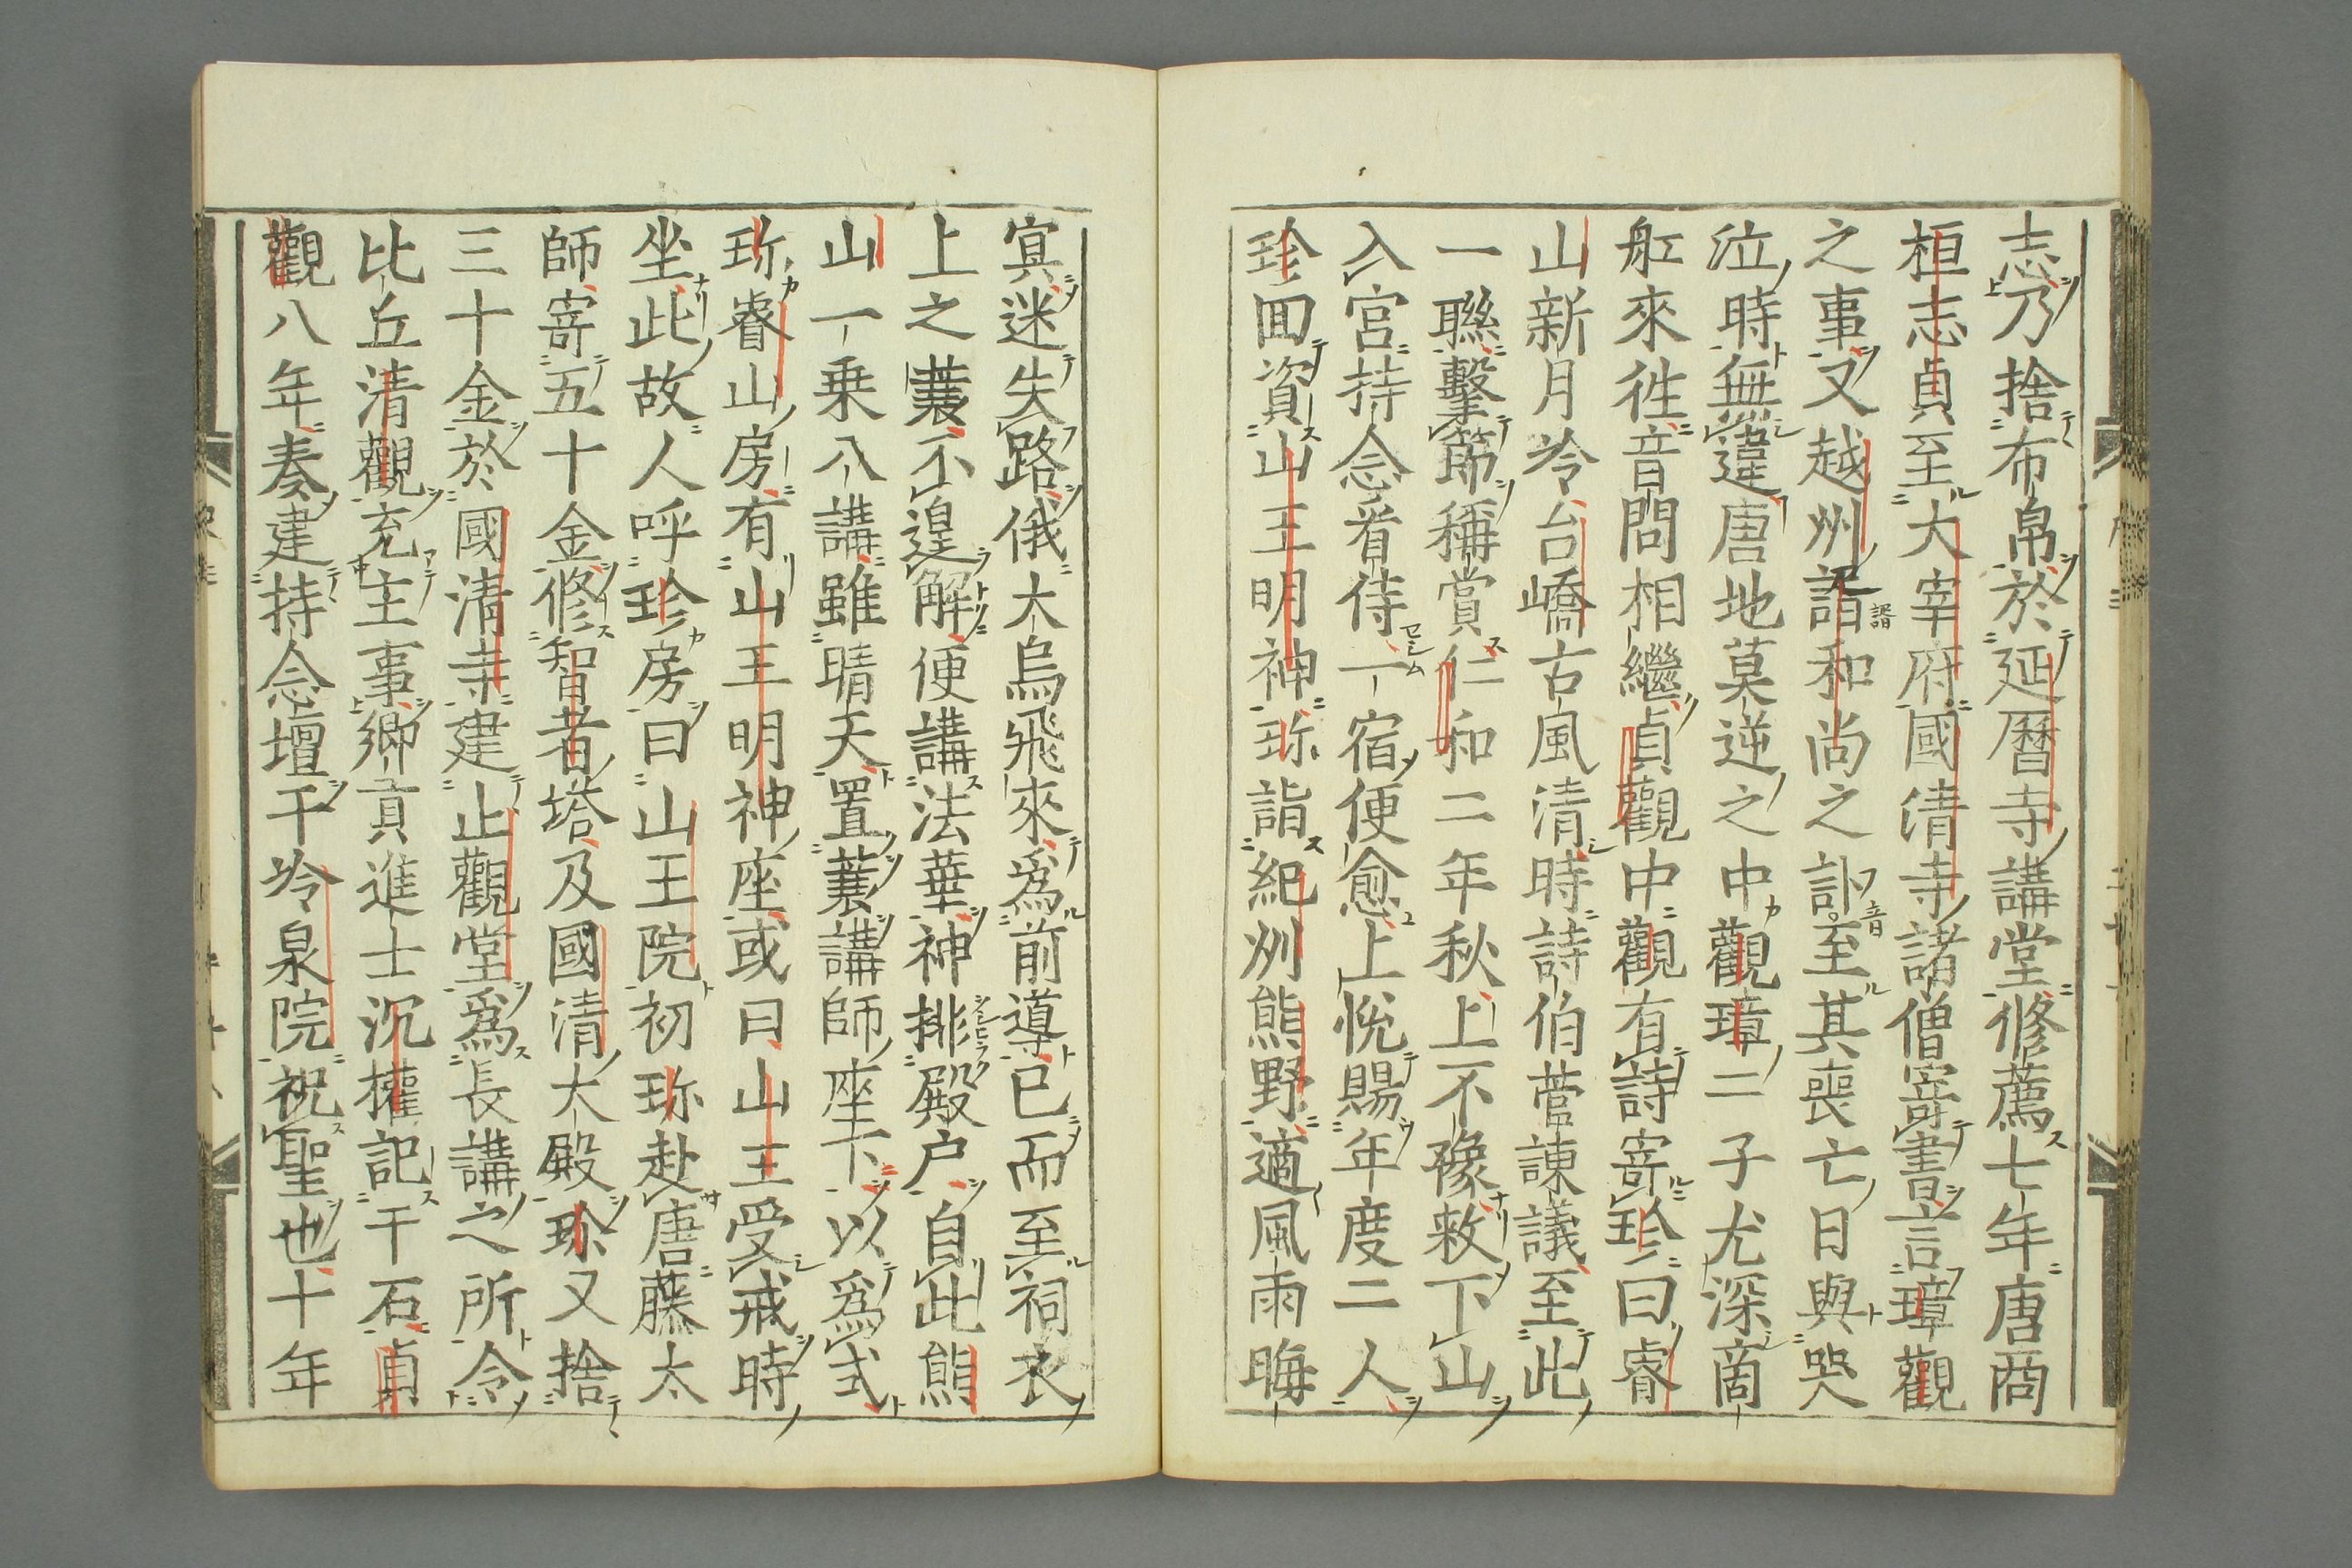 志乃捨布帛於延曆寺講堂修薦七年唐商
桓志貞至大宰府國清寺諸僧寄書言璋觀
之事又越州諝和尚之訃至其喪亡日與哭
泣時無違唐地莫逆之中觀璋二子尤深啇
舡來徃音問相繼貞觀中觀有詩寄珎曰睿
山新月冷台嶠古風清時詩伯菅諫議至此
一聯擊節稱賞仁和二年秋上不豫敕下山
入宮持念看侍一宿便愈上悅賜年度二人
珎回資山王明神珎詣紀州熊野適風雨晦
寘迷失路俄大烏飛來爲前導已而至祠衣
上之蓑不遑解便講法華神排殿戶自此熊
山一乗八講雖晴天置蓑講師座下以爲式
珎睿山房有山王明神座或曰山王受戒時
坐此故人呼珎房曰山王院初珎赴唐藤太
師寄五十金修智者塔及國清大殿珎又捨
三十金於國清寺建止觀堂爲長講之所令
比丘清觀充主事鄉貢進士沉權記于石貞
觀八年奏建持念壇于冷泉院祝聖也十年